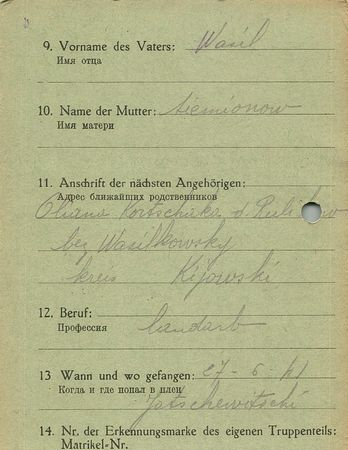 9. Vorname des Vaters: Wasil
Имя отца
10. Name der Mutter: Siemionow
Имя матери
11. Anschrift der nächsten Angehörigen:
Адрес ближайших родственников
Kortschaka d.
bez Wasilkowsky
kreis Kijowski
12. Beruf: Landarb
Профессия
13 Wann und wo gefangen: 27-6-41
Когда и где попал в плен
Jatschewitschi
14. Nr. der Erkennungsmarke des eigenen Truppenteils:
Matrikel-Nr.